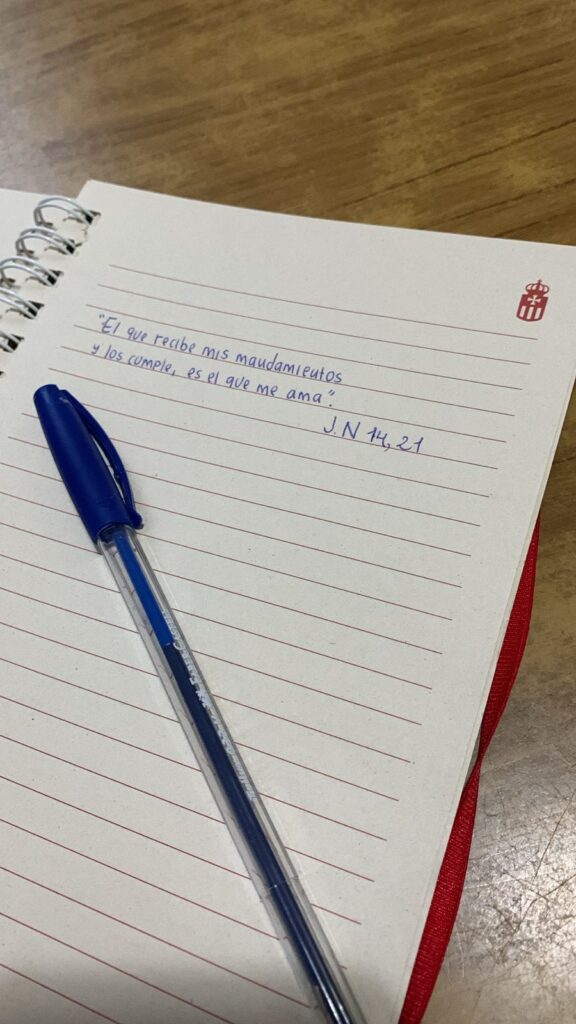 "El que recibe mis mandamientos
y los cumple, es el que me ama".
J.N 14, 21